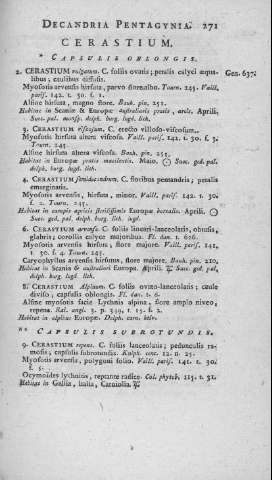 DECANDRIA PENTAGYNIA. 271
CERASTIUM.
* CAPSULIS OBLONGIS.
2. CERASTIUM vulgatum. C. foliis ovatis; petalis calyci æqua- Gen. 637.
libus; caulibus diffusis.
Myosotis arvensis hirsuta, parvo flore albo. Tourn. 245. Vaill.
paris. 142. t. 30. f. 1.
Alsine hirsuta, magno flore. Bauh. pin. 251.
Habitat in Scaniæ & Europæ australioris pratis, areis. Aprili.
Suec. pal. monsp. delph. burg. lugd. lith.
3. CERASTIUM viscosum. C. erecto villoso-viscosum.
Myosotis hirsuta altera viscosa. Vaill. paris. 142. t. 30. f. 3.
Tourn. 245.
Alsine hirsuta altera viscosa. Bauh. pin. 251.
Habitat in Europæ pratis macilentis. Maio. ☉ Suec. ged. pal.
delph. burg. lugd. lith.
4. CERASTIUM semidecandrum. C. floribus pentandris; petalis
emarginatis.
Myosotis arvensis, hirsuta, minor. Vaill. paris. 142. t. 30.
f. 2. Tourn. 245.
Habitat in campis apricis sterilissimis Europæ borealis. Aprili. ☉
Suec. ged. pal. delph. burg. lith.
6. CERASTIUM arvense. C. foliis lineari-lanceolatis, obtusis,
glabris; corollis calyce majoribus. Fl. dan. t. 626.
Myosotis arvensis hirsuta, flore majore. Vaill. paris. 141.
t. 30. f. 4. Tourn. 245.
Caryophyllus arvensis hirsutus, flore majore. Bauh. pin. 210.
Habitat in Scaniæ & australiori Europa. Aprili. ♃ Suec. ged. pal.
delph. burg. lugd. lith.
8. CERASTIUM Alpinum. C. foliis ovato-lanceolatis; caule
diviso; capsulis oblongis. Fl. dan. t. 6.
Alsine myosotis facie Lychnis alpina, flore amplo niveo,
repens. Rai. angl. 3. p. 349. t. 15. f. 2.
Habitat in alpibus Europæ. Delph. carn. helv.
** CAPSULIS SUBROTUNDIS.
9. CERASTIUM repens. C. foliis lanceolatis; pedunculis ra-
mosis; capsulis subrotundis. Kniph. cent. 12. n. 25.
Myosotis arvensis, polygoni folio. Vaill. paris. 141. t. 30.
f. 5.
Ocymoides lychnitis, reptante radice. Col. phytob. 115. t. 31.
Habitat in Gallia, Italia, Carniolia. ♃